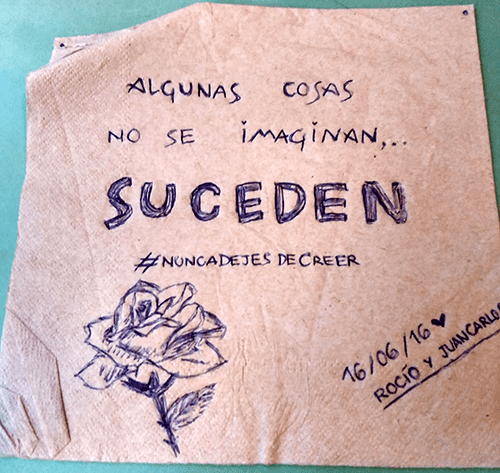 ALGUNAS COSAS
NO SE iMAGiNAN,..
SUCEDEN
#NUNCADEJES DE CREER
16/06/16 ♥
ROCÍO Y JUANCARLOS